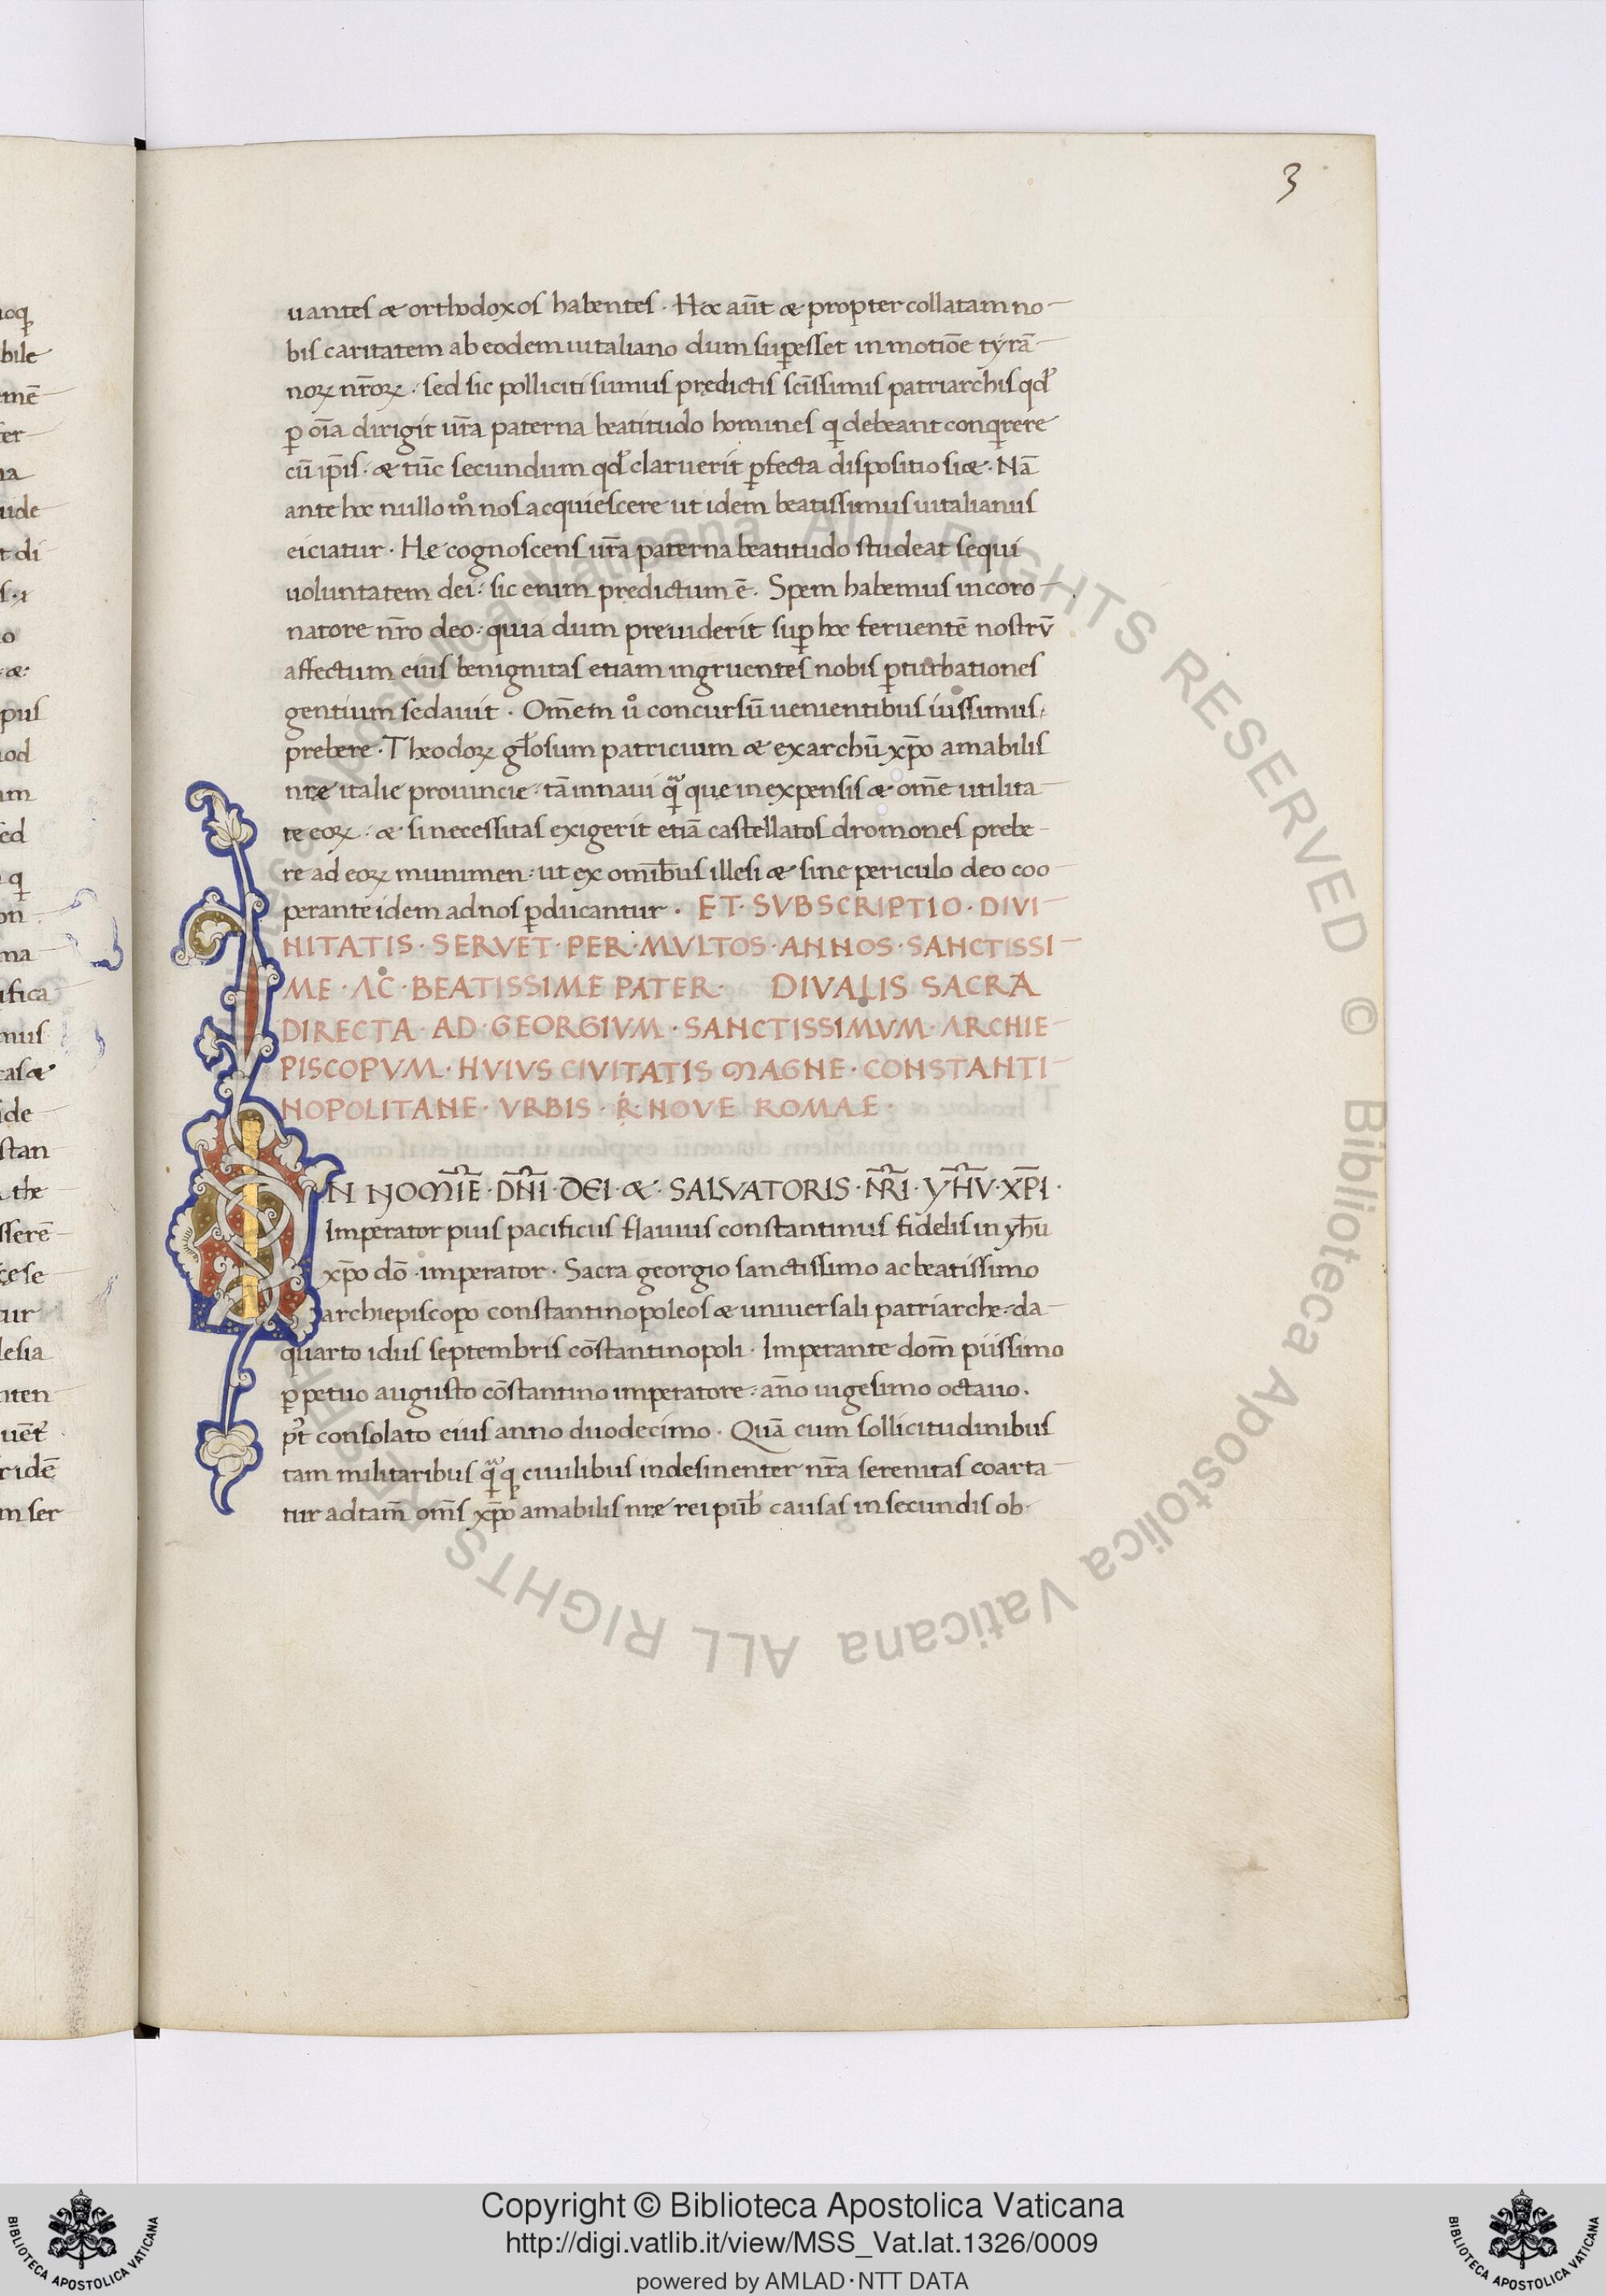 3
uantes & orthodoxos habentes. Hoc aūt & propter collatam no-
bis caritatem ab eodem uitaliano dum sup̱esset in motiōe tyrā-
noꝝ nr̄oꝝ: sed sic polliciti sumus predictis sc̄issimis patriarchis qđ
ꝑ oīa dirigit ur̄a paterna beatitudo homines q debeant conqrere
cū ip̄is: & tūc secundum qđ claruerit ꝑfecta dispositio si&. Nā
ante hoc nullo mͦ nos acquiescere ut idem beatissimus uitalianus
eiciatur. He cognoscens ur̄a paterna beatitudo studeat sequi
uoluntatem dei: sic enim predictum ē. Spem habemus in coro-
natore nr̄o deo: quia dum preuiderit suꝑ hoc feruentē nostrū
affectum eius benignitas etiam ingruentes nobis ꝑturbationes
gentium sedauit. Om̄em uͦ concursū uenientibus iussimus
prebere. Theodoꝝ gl̄osum patricium & exarchū xp̄o amabilis
nr̄e italie prouincie: tā in naui qͣ que in expensis & om̄e utilita-
te eoꝝ: & si necessitas exigerit etiā castellatos dromones prebe-
re ad eoꝝ munimen: ut ex omībus illesi & sine periculo deo coo-
perante idem ad nos ꝑducantur. ET·SVBSCRIPTIO·DIVI-
NITATIS·SERVET·PER·MVLTOS·ANNOS·SANCTISSI-
ME·AC·BEATISSIME PATER· DIVALIS SACRA
DIRECTA·AD·GEORGIVM·SANCTISSIMVM·ARCHIE-
PISCOPVM·HVIVS CIVITATIS MAGNE·CONSTANTI-
NOPOLITANE·VRBIS· NOVE ROMAE·
IN NOMĪE·DN̄I·DEI·&·SALVATORIS·NR̄I·YH̄V·XP̄I·
Imperator pius pacificus flauius constantinus fidelis in yhū
xp̄o dō imperator. Sacra georgio sanctissimo ac beatissimo
archiepiscopo constantinopoleos & uniuersali patriarche: da-
quarto idus septembris cōstantinopoli. Imperante dom̄ piissimo
ꝑpetuo augusto cōstantino imperatore: an̄o uigesimo octauo.
p̄t consolato eius anno duodecimo. Quā cum sollicitudinibus
tam militaribus qͣq ciuilibus indesinenter nr̄a serenitas coarta-
tur ad tam̄ om̄s xp̄o amabilis nr̄e rei pub̄ causas in secundis ob-
oq
bile
mē
er
na
uide
t di
s·r
o
·&:
pus
od
um
ed
q
on
ma
ifica
mus
cas&
ide
stan
the
sserē
cese
tur
lesia
nten
uēt
r idē
m ser
© Biblioteca Apostolica Vaticana ALL RIGHTS RESERVED
Copyright © Biblioteca Apostolica Vaticana
http://digi.vatlib.it/view/MSS_Vat.lat.1326/0009
powered by AMLAD·NTT DATA
BIBLIOTECA APOSTOLICA VATICANA
BIBLIOTECA APOSTOLICA VATICANA